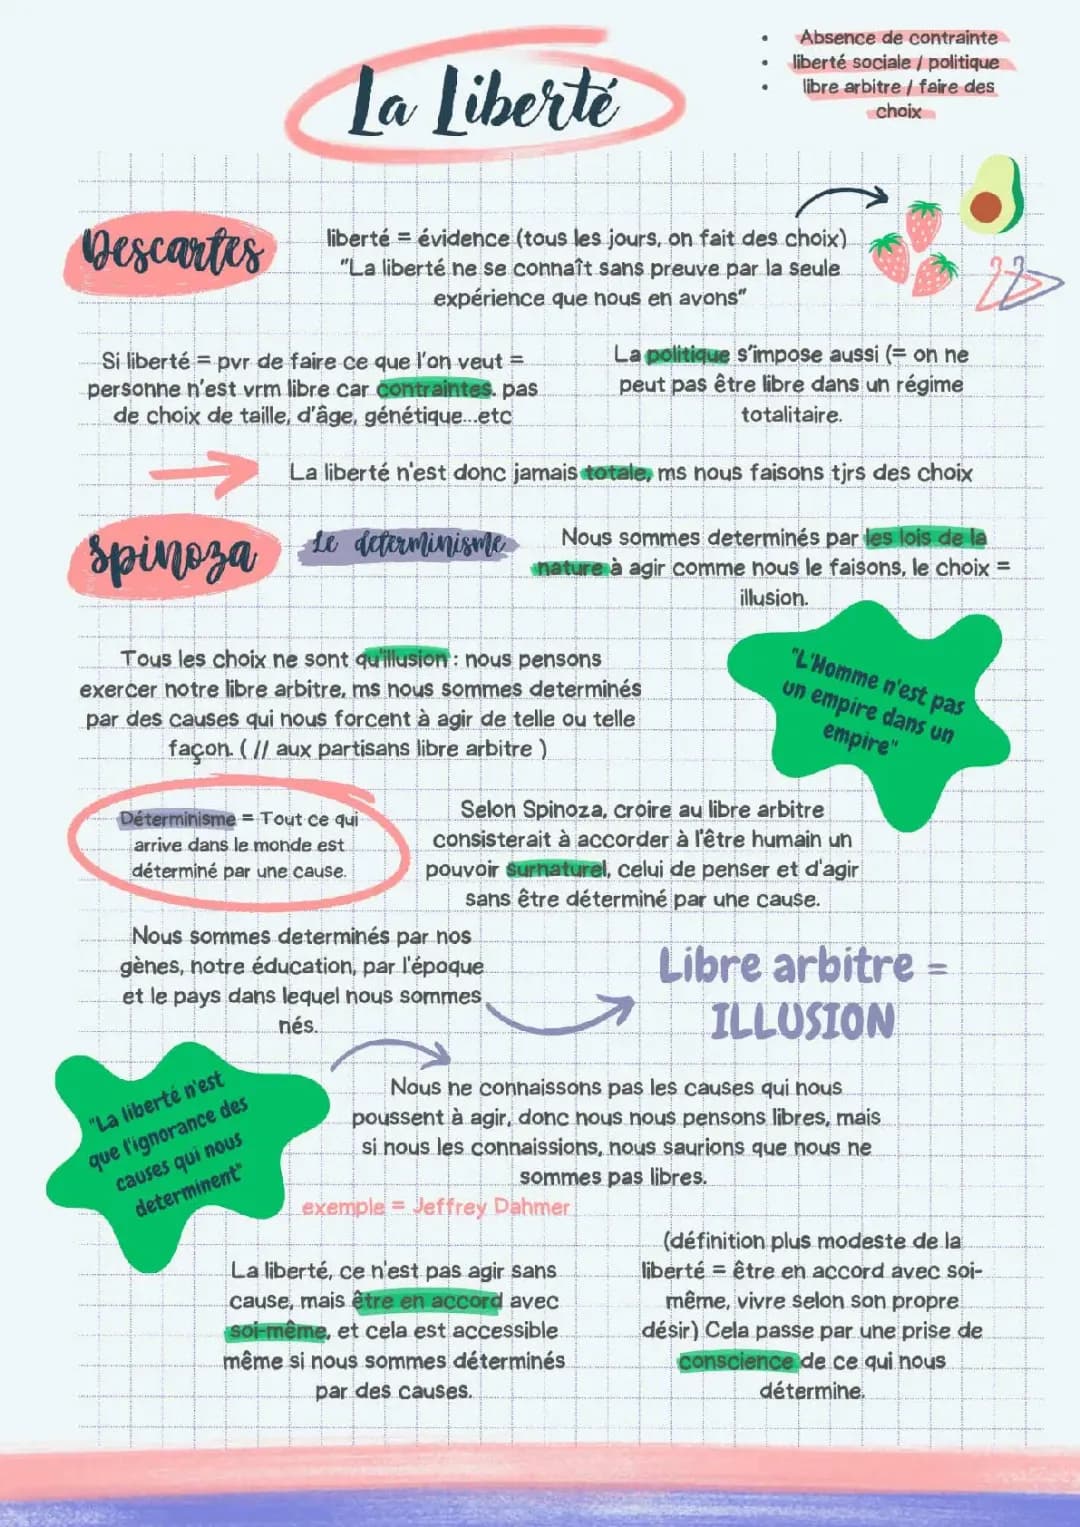 La Liberté
Absence de contrainte
liberté sociale / politique
libre arbitre / faire des
choix
Descartes
liberté = évidence (tous les jours, on fait des choix)
"La liberté ne se connaît sans preuve par la seule
expérience que nous en avons"
Si liberté = pvr de faire ce que l'on veut =
personne n'est vrm libre car contraintes. pas
de choix de taille, d'âge, génétique...etc
La politique s'impose aussi (= on ne
peut pas être libre dans un régime
totalitaire.
La liberté n'est donc jamais totale, ms nous faisons tjrs des choix
Spinoza
Le determinisme
Nous sommes determinés par les lois de la
nature à agir comme nous le faisons, le choix =
illusion.
Tous les choix ne sont qu'illusion : nous pensons
exercer notre libre arbitre, ms nous sommes determinés
par des causes qui nous forcent à agir de telle ou telle
façon. ( // aux partisans libre arbitre )
"L'Homme n'est pas
un empire dans un
empire"
Déterminisme = Tout ce qui
arrive dans le monde est
déterminé par une cause.
Selon Spinoza, croire au libre arbitre
consisterait à accorder à l'être humain un
pouvoir surnaturel, celui de penser et d'agir
sans être déterminé par une cause.
Nous sommes determinés par nos
gènes, notre éducation, par l'époque
et le pays dans lequel nous sommes
nés.
Libre arbitre =
ILLUSION
"La liberté n'est
que l'ignorance des
causes qui nous
determinent"
Nous ne connaissons pas les causes qui nous
poussent à agir, donc nous nous pensons libres, mais
si nous les connaissions, nous saurions que nous ne
sommes pas libres.
exemple = Jeffrey Dahmer
La liberté, ce n'est pas agir sans
cause, mais être en accord avec
soi-même, et cela est accessible
même si nous sommes déterminés
par des causes.
(définition plus modeste de la
liberté = être en accord avec soi-
même, vivre selon son propre
désir) Cela passe par une prise de
conscience de ce qui nous
détermine.